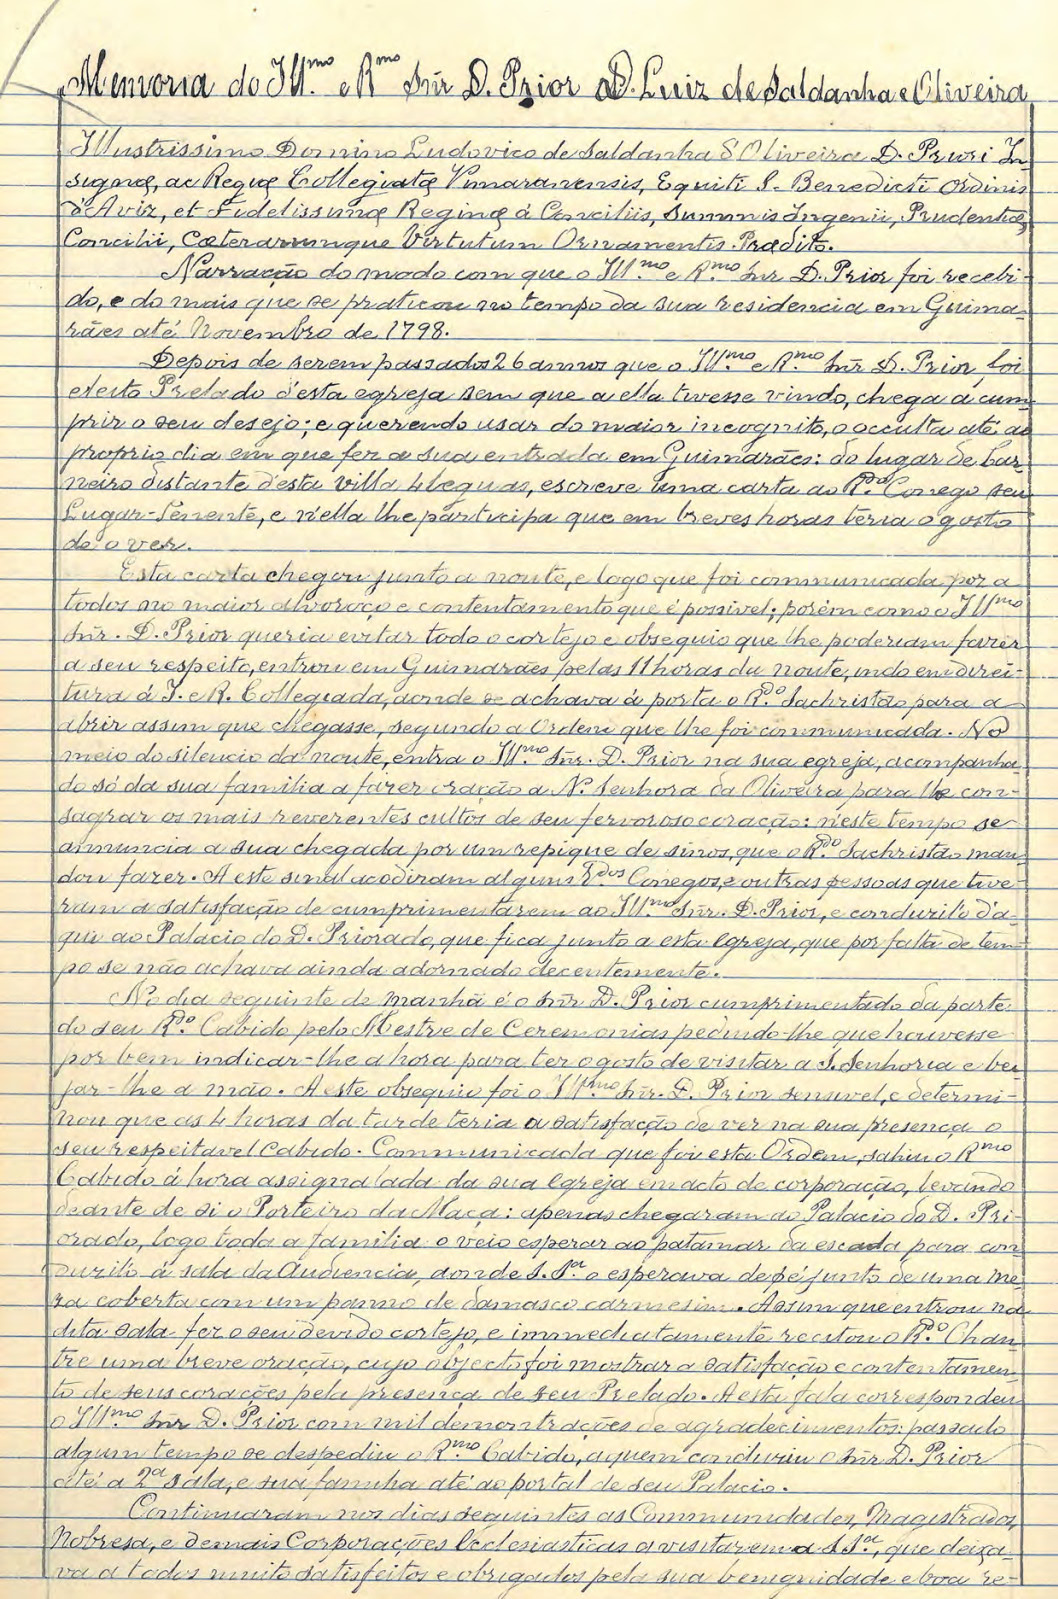 Memoria do Ill.mo e R.mo Snr D. Prior D. Luiz de Saldanha e Oliveira
Illustrissimo Domino Ludovico de Saldanha S' Oliveira D. Priori In-
signę, ac Regię Collegiatę Vimaranensis, Equiti S. Benedicti Ordinis
d'Aviz, et Fidelissimę Reginę á Conciliis, Summis Ingenii, Prudentię,
Concilii, Cæterarumque Virtutum Ornamentis Prædito.
Narração do modo com que o Ill.mo e R.mo Snr D. Prior foi recebi-
do, e do mais que se praticou no tempo da sua residencia em Guima-
rães até Novembro de 1798.
Depois de serem passados 26 annos que o Ill.mo e R.mo Snr D. Prior foi
eleito Prelado d'esta egreja sem que a ella tivesse vindo, chega a cum-
prir o seu desejo; e querendo usar do maior incognito, o occulta até ao
proprio dia em que fez a sua entrada em Guimarães: do lugar de Car-
neiro distante d'esta villa 4 leguas, escreve uma carta ao R.do Conego seu
Lugar-Tenente, e n'ella lhe participa que em breves horas teria o gosto
de o ver.
Esta carta chegou junto a noute, e logo que foi communicada poz a
todos no maior alvoroço e contentamento que é possivel; porém como o Ill.mo
Snr. D. Prior queria evitar todo o cortejo e obsequio que lhe poderiam fazer
a seu respeito, entrou em Guimarães pelas 11 horas da noute, indo em direi-
tura á I. e R. Collegiada, aonde se achava á porta o R.do Sachristão para a
abrir assim que chegasse, segundo a Ordem que lhe foi communicada. No
meio do silencio da noute, entra o Ill.mo Snr. D. Prior na sua egreja, acompanha-
do só da sua familia a fazer oração a N.a Senhora da Oliveira para lhe con-
sagrar os mais reverentes cultos de seu fervoroso coração: n'este tempo se
annuncia a sua chegada por um repique de sinos, que o R.do Sachristão man-
dou fazer. A este sinal acodiram alguns R.dos Conegos, e outras pessoas que tive-
ram a satisfação de cumprimentarem ao Ill.mo Snr. D. Prior, e conduzil-o d'a-
qui ao Palacio do D. Priorado, que fica junto a esta Egreja, que por falta de tem-
po se não achava ainda adornado decentemente.
No dia seguinte de manhã é o Snr D. Prior cumprimentado da parte
do seu R.do Cabido pelo Mestre de Ceremonias pedindo-lhe que houvesse
por bem indicar-lhe a hora para ter o gosto de visitar a S. Senhoria e bei-
jar-lhe a mão. A este obsequio foi o Ill.mo Snr. D. Prior sensivel, e determi-
nou que as 4 horas da tarde teria a satisfação de ver na sua presença o
seu respeitavel Cabido. Communicada que foi esta Ordem, sahiu o R.mo
Cabido á hora assignalada da sua Egreja em acto de corporação, levando
deante de si o Porteiro da Maça: apenas chegaram ao Palacio do D. Pri-
orado, logo toda a familia o veio esperar ao patamar da escada para con-
duzil-o á sala da Audiencia, aonde S. S.a o esperava de pé junto de uma me-
za coberta com um panno de damasco carmesim. Assim que entrou na
dita sala fez o seu devido cortejo, e immediatamente recitou o R.do Chan-
tre uma breve oração, cujo objecto foi mostrar a satisfação e contentamen-
to de seus corações pela presença de seu Prelado. A esta fala correspondeu
o Ill.mo Snr D. Prior com mil demontrações de agradecimentos: passado
algum tempo se despediu o R.mo Cabido, a quem conduziu o Snr D. Prior
até a 2ª sala, e sua familia até ao portal de seu Palacio.
Continuaram nos dias seguintes as Communidades, Magistrados,
Nobresa, e demais Corporações Ecclesiasticas a visitarem a S. S.a, que deixa-
va a todos muito satisfeitos e obrigados pela sua benignidade e boa re-